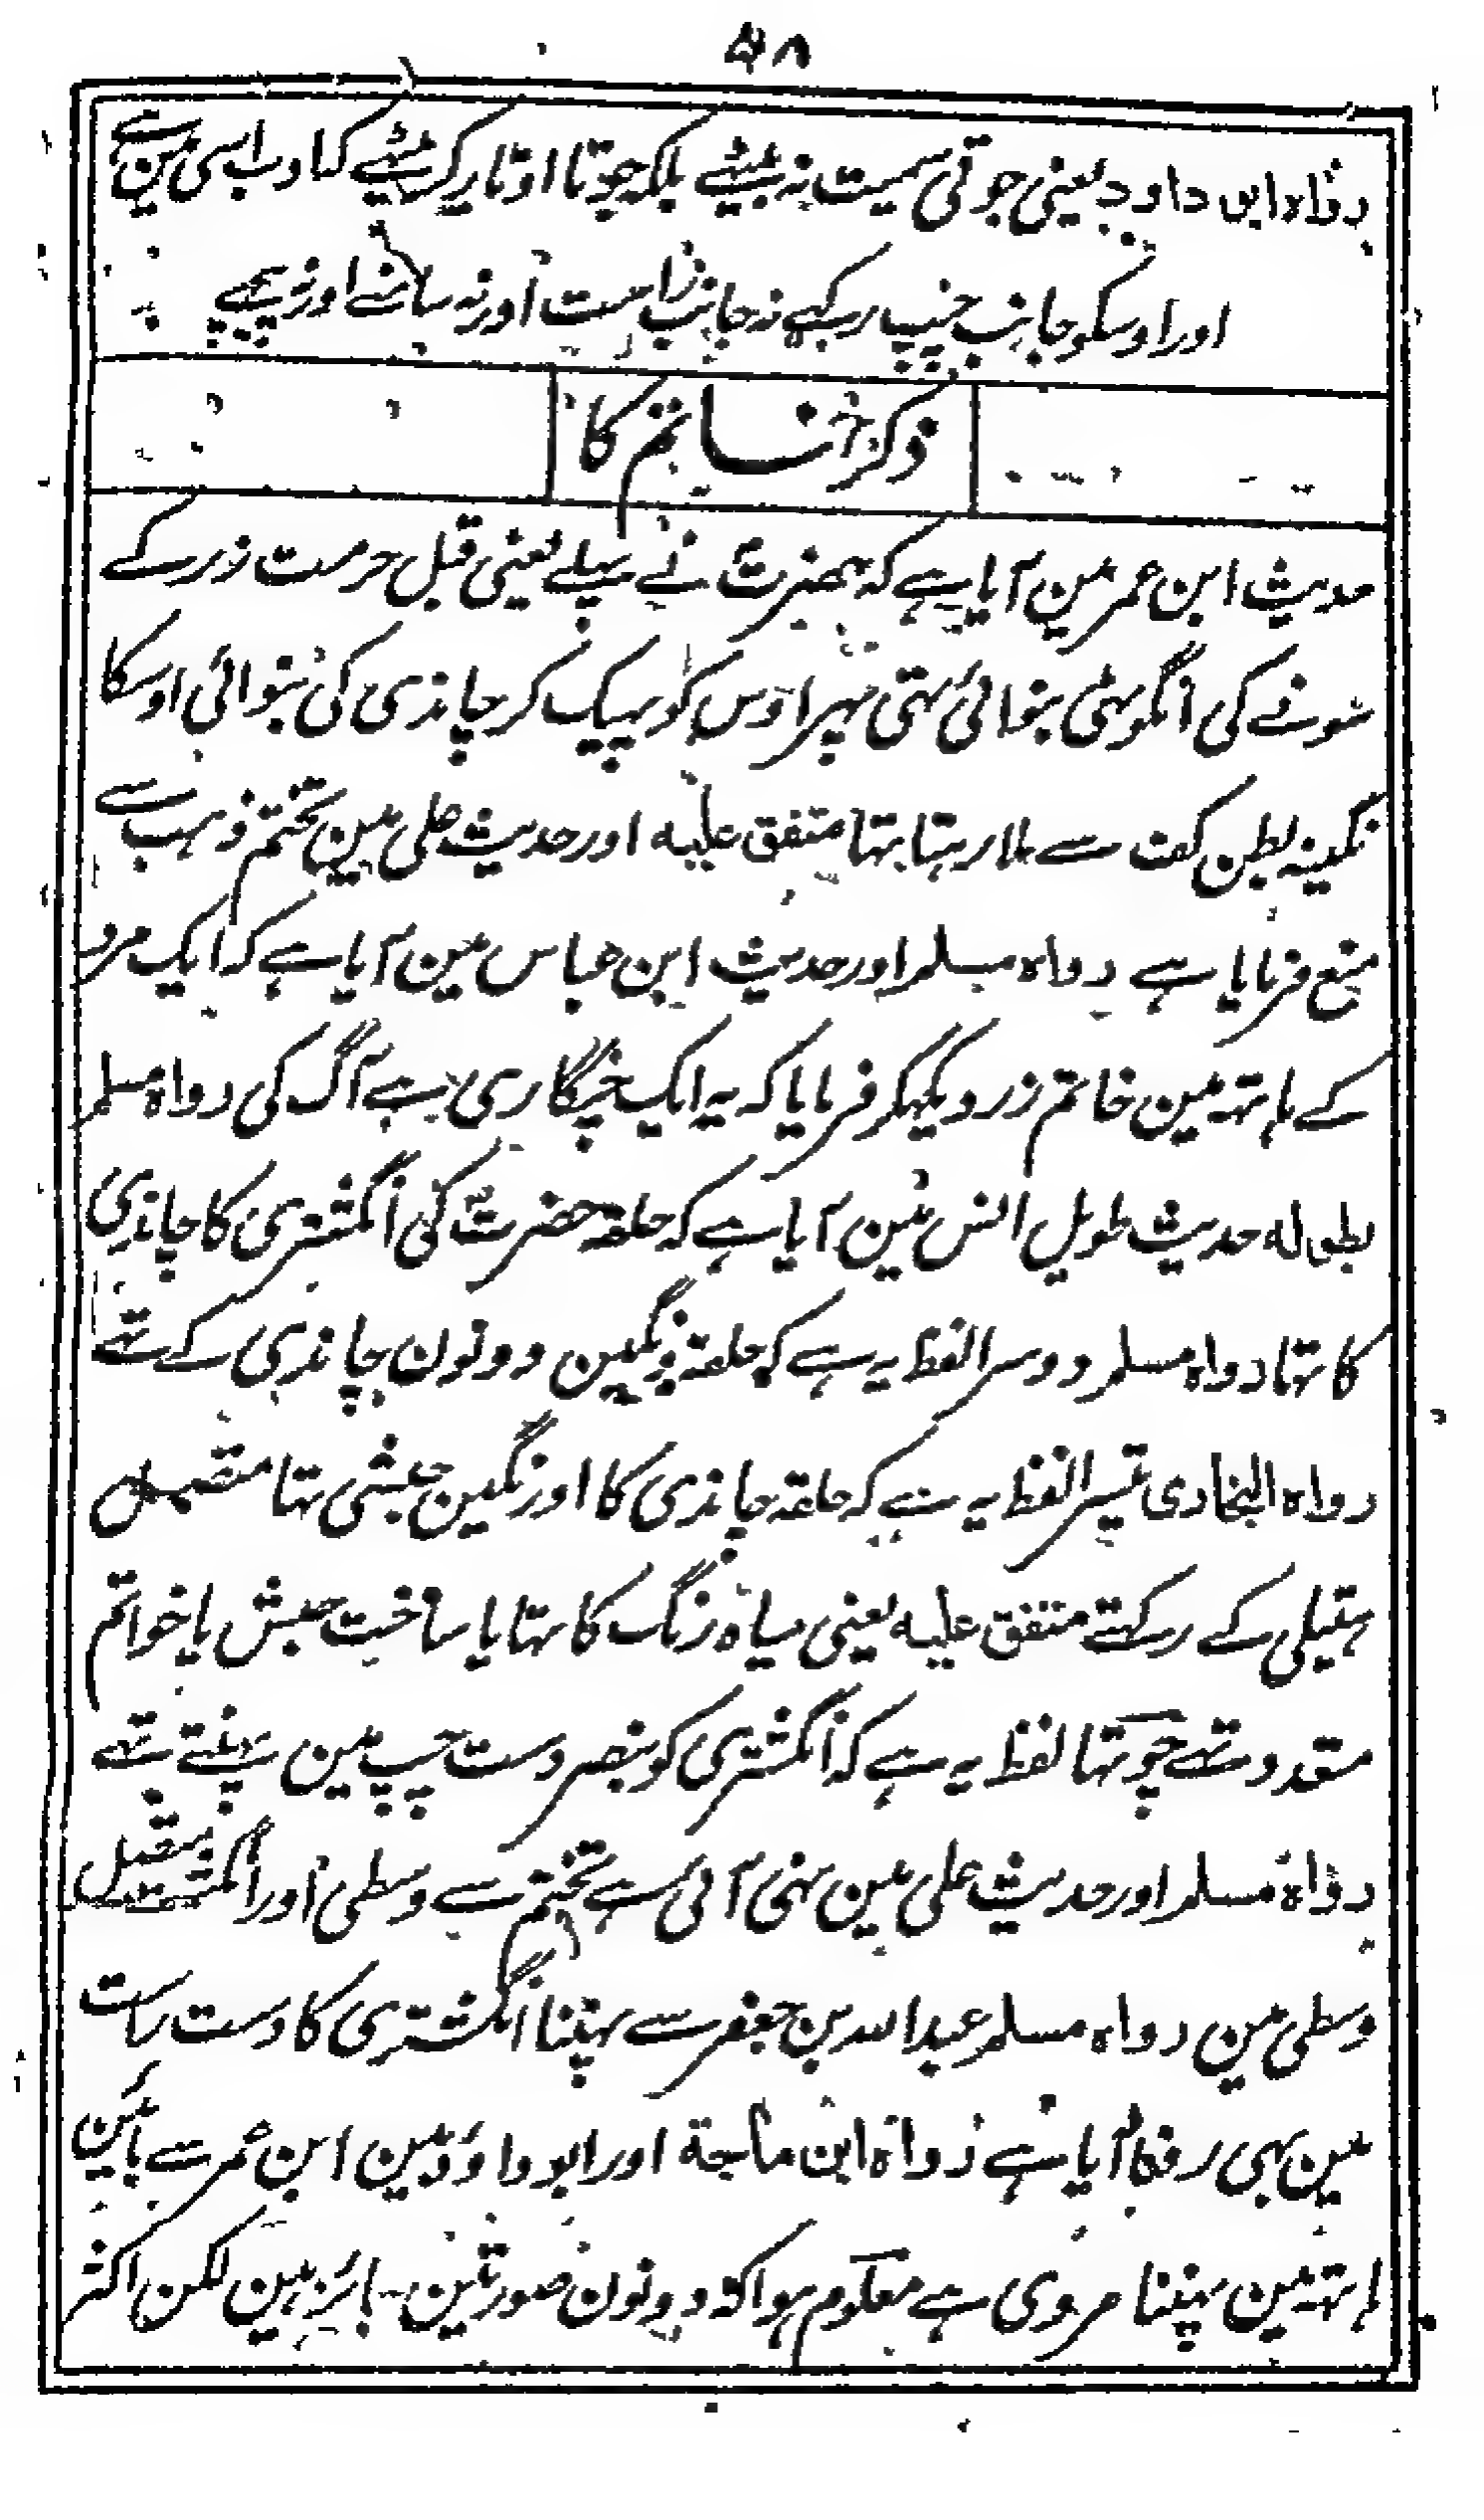 ۵۸
رواہ ابن داود یعنی جوتی سمیت نہ بیٹھے بلکہ جوتا اوتار کر بیٹھے کہ ادب اسی مین ہے
اور اوسکو جانب چپ رکہے نہ جانب راست اور نہ سامنے اور نہ پیچھے
ذکر خاتم کا
حدیث ابن عمر مین آیا ہے کہ حضرت نے پہلے یعنی قبل حرمت زر کے
سونے کی انگوٹھی بنوائی تہی پہر اوس کو پہیک کر چاندی کی بنوائی اوسکا
نگینہ بطن کف سے ملا رہتا تہا متفق علیہ اور حدیث علی مین تختم ذہب سے
منع فرمایا ہے رواہ مسلم اور حدیث ابن عباس مین آیا ہے کہ ایک مرد
کے ہاتہ مین خاتم زر دیکہکر فرمایا کہ یہ ایک چنگاری ہے آگ کی رواہ مسلم
بطولہ حدیث طویل انس مین آیا ہے کہ حلقہ حضرت کی انگشتری کا چاندی
کا تہا رواہ مسلم دوسرا لفظ یہ ہے کہ حلقہ و نگین دونون چاندی کے تہے
رواہ البخاری تیسرا لفظ یہ ہے کہ حلقہ چاندی کا اور نگین حبشی تہا متصل
ہتیلی کے رکہتے متفق علیہ یعنی سیاہ رنگ کا تہا یا ساخت حبش یا خواتم
متعدد تہے چوتہا لفظ یہ ہے کہ انگشتری کو بنصر دست چپ مین پہنتے تہے
رواہ مسلم اور حدیث علی مین نہی آئی ہے تختم سے وسطی اور انگشت متصل
وسطی مین رواہ مسلم عبد اللہ بن جعفر سے پہننا انگشتری کا دست راست
مین بہی رفعا آیا ہے رواہ ابن ماجة اور ابو داؤد مین ابن عمر سے بائین
ہاتہ مین پہننا مروی ہے معلوم ہوا کہ دونون صورتین جائز ہین لکن اکثر